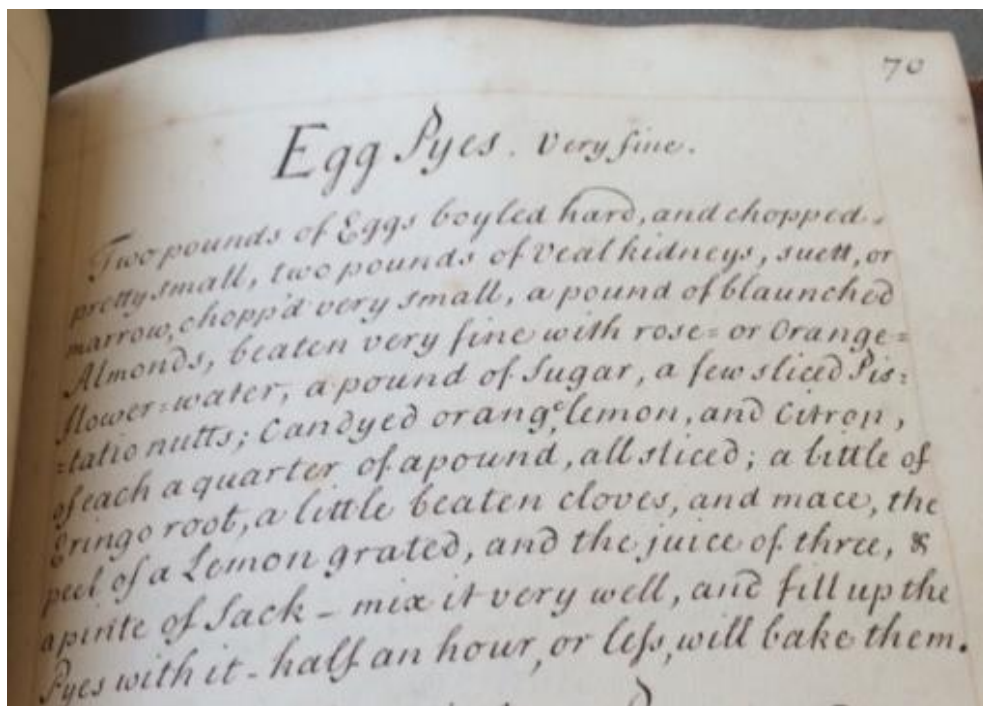 70
Egg Pyes. Very fine.
Two pounds of Eggs boyled hard, and chopped
pretty small, two pounds of Veal kidneys, suett, or
marrow, chopp'd very small, a pound of blaunched
Almonds, beaten very fine with rose= or Orange=
flower=water, a pound of Sugar, a few sliced Pis=
=tatio nutts; Candyed orange, lemon, and Citron,
of each a quarter of a pound, all sliced; a little of
Eringo root, a little beaten cloves, and mace, the
peel of a Lemon grated, and the juice of three, &
a pinte of Sack - mix it very well, and fill up the
Pyes with it - half an hour, or leſs, will bake them.